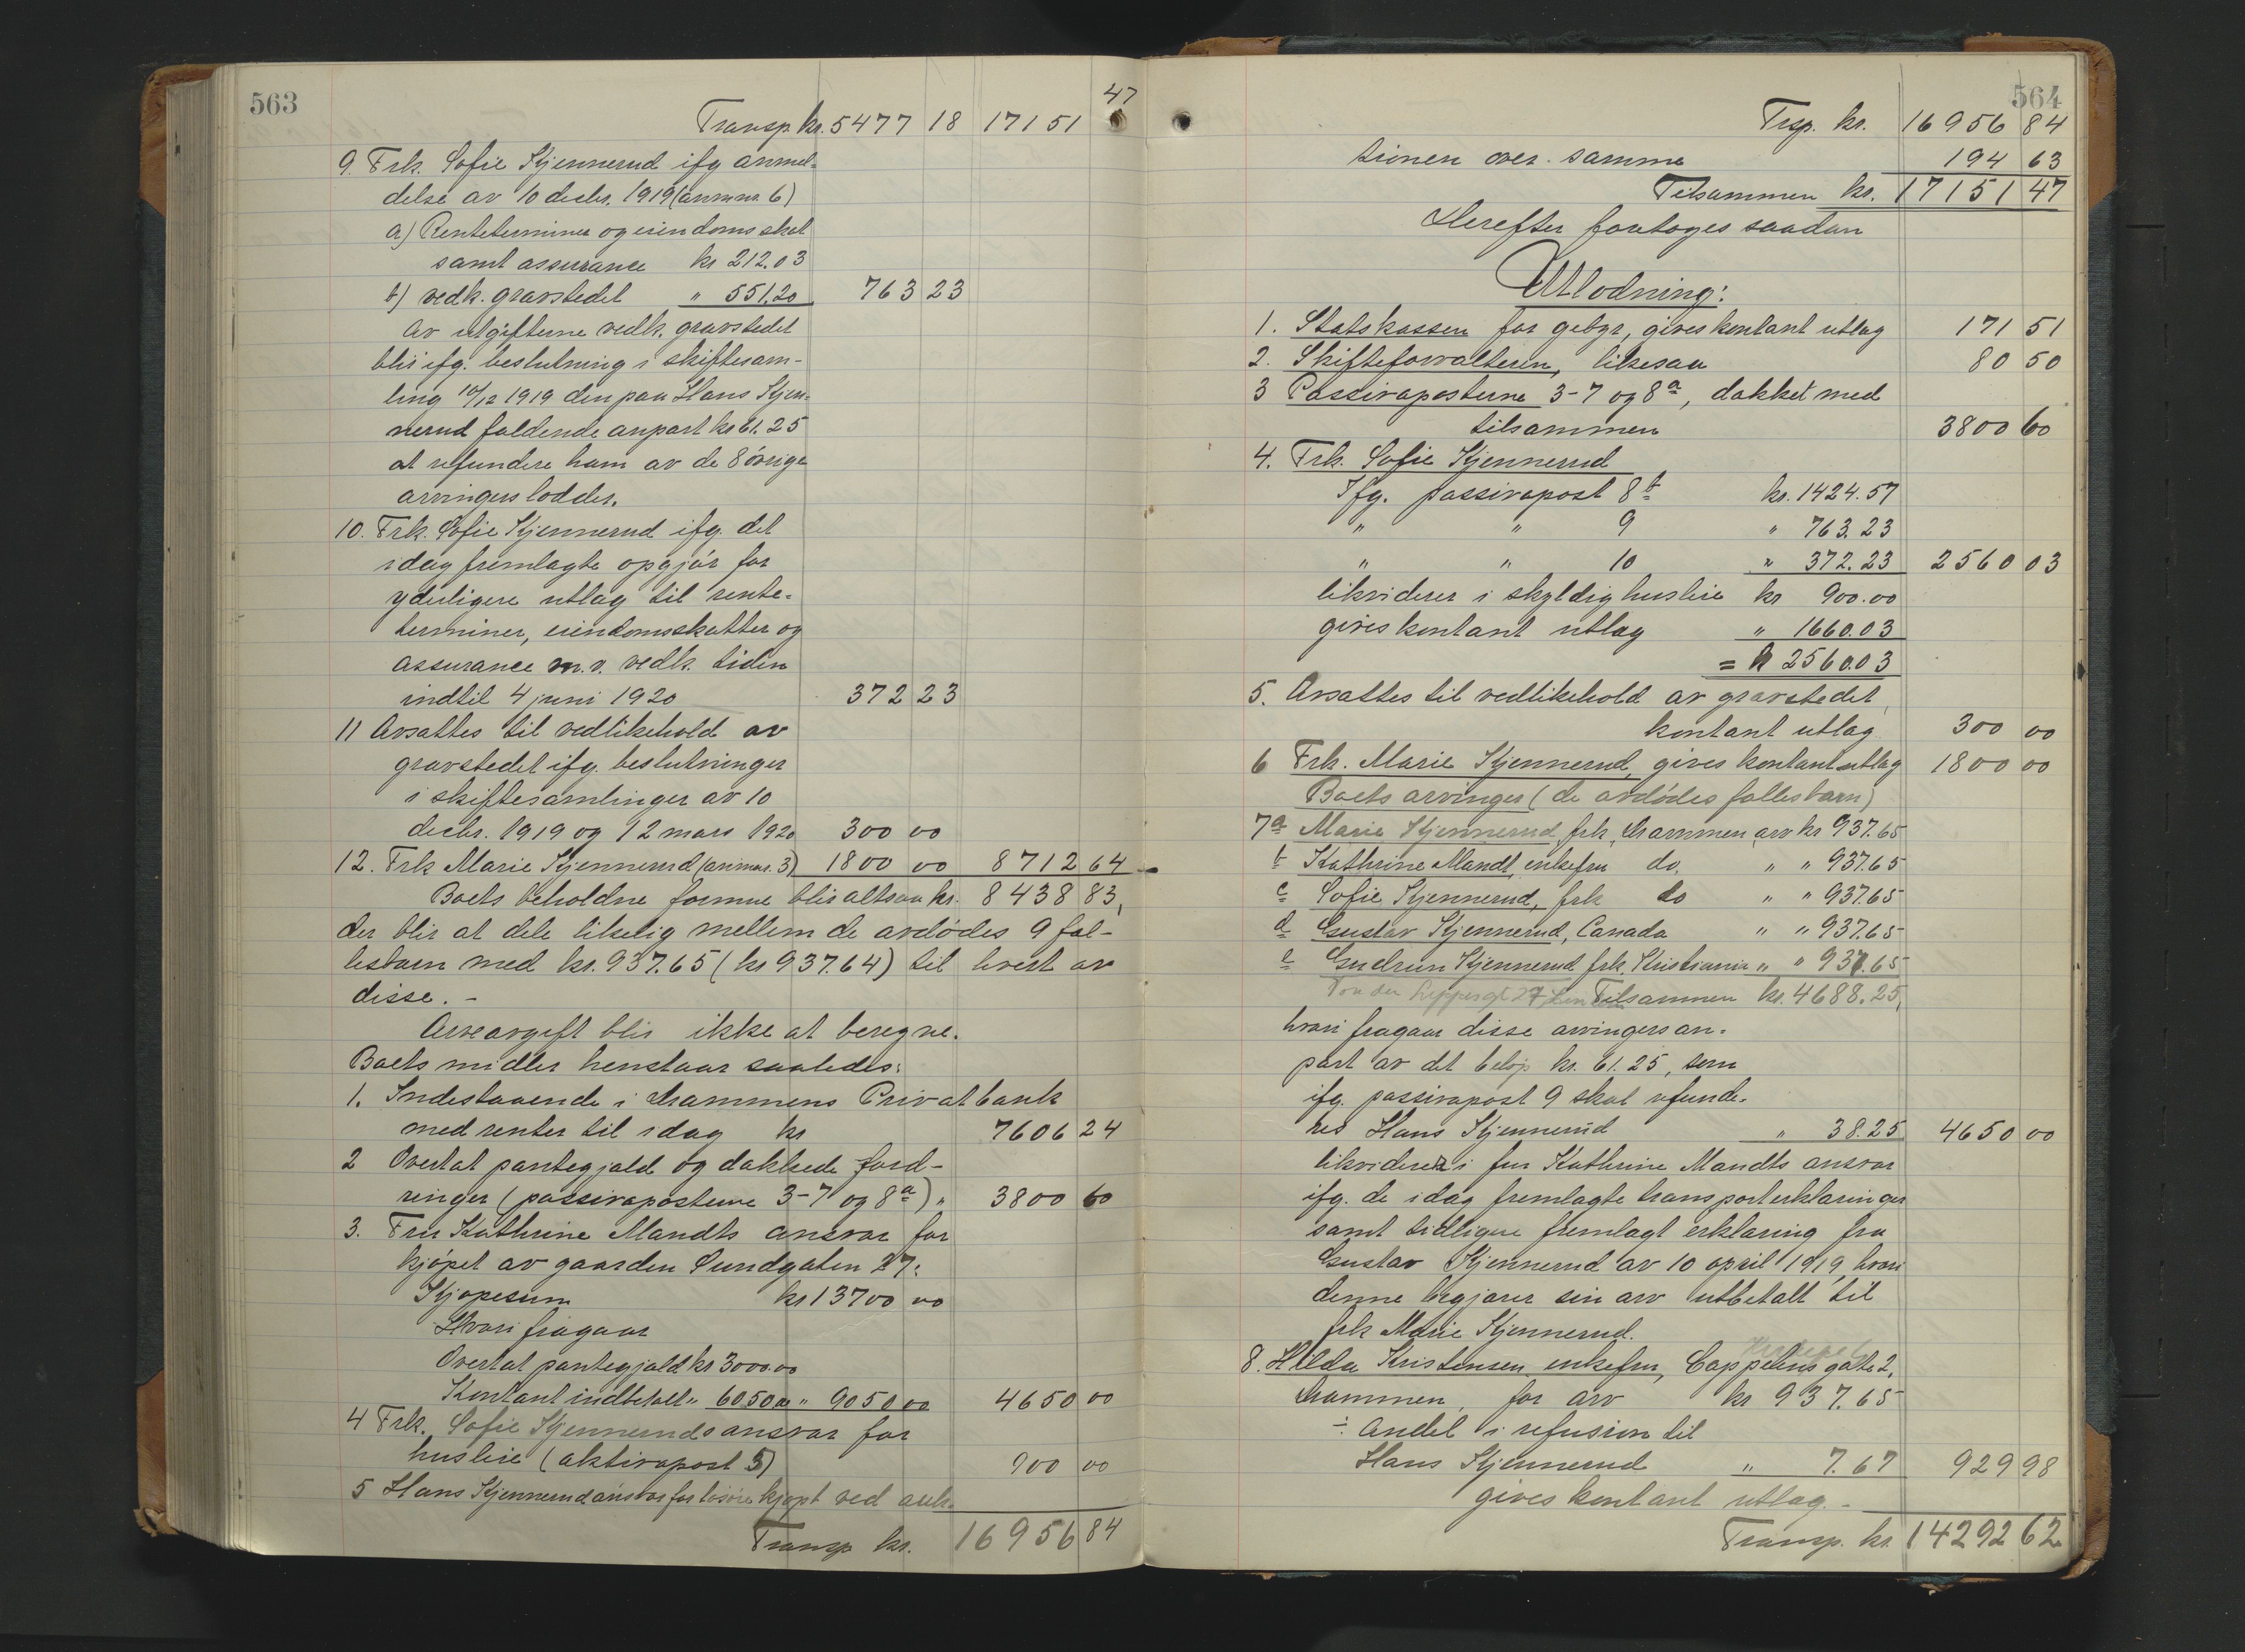 563
47
Transp. kr. 5477 18 17151
9. Frk. Sofie Kjennerud ifg anmel-
delse av 10 decbr. 1919 (anm nr. 6)
a) Renteterminer og eiendomsskat
samt assurance kr 212.03
b) vedk. gravstedet " 551.20 763 23
Av utgifterne vedk. gravstedet
blir ifg. beslutning i skiftesam-
ling 10/12 1919 den paa Hans Kjen-
nerud faldende anpart kr 61.25
at refundere ham av de 8 øvrige
arvingers lodder.
10. Frk. Sofie Kjennerud ifg. det
idag fremlagte opgjør for
yderligere utlæg til rente-
terminer, eiendomsskatter og
assurance m.v. vedk. tiden
indtil 4 juni 1920 372 23
11 Avsættes til vedlikehold av
gravstedet ifg. beslutninger
i skiftesamlinger av 10
decbr. 1919 og 12 mars 1920 300 00
12. Frk Marie Kjennerud (anm nr. 3) 1800 00 8712 64
Boets beholdne formue blir altsaa kr. 8438 83,
der blir at dele likelig mellem de avdødes 9 fæl-
lesbarn med kr. 937.65 (kr 937.64) til hvert av
disse. -
Arveavgift blir ikke at beregne.
Boets midler henstaar saaledes:
1. Indestaaende i Drammens Privatbank
med renter til idag kr 7606 24
2 Overtat pantegjæld og dækkede ford-
ringer (passivaposterne 3-7 og 8a) " 3800 60
3. Fru Kathrine Mandts ansvar for
kjøpet av gaarden Sundgaten 27:
Kjøpesum kr 13700 00
Hvori fragaar
Overtat pantegjæld kr 3000.00
Kontant indbetalt " 6050 00 " 9050 00 4650 00
4 Frk. Sofie Kjenneruds ansvar for
husleie (aktivapost 3) 900 00
5 Hans Kjennerud ansvar for løsøre kjøpt ved auk-
Transp kr. 16956 84
564
Trsp. kr. 16956 84
tionen over samme 194 63
Tilsammen kr. 17151 47
Herefter foretoges saadan
Utlodning:
1. Statskassen for gebyr, gives kontant utlæg 171 51
2. Skifteforvalteren, likesaa 80 50
3 Passivaposterne 3-7 og 8a, dækket med
tilsammen 3800 60
4. Frk. Sofie Kjennerud
Ifg. passivapost 8b kr. 1424.57
" " 9 " 763.23
" " 10 " 372.23 2560 03
likviderer i skyldig husleie kr 900.00
gives kontant utlæg " 1660.03
= kr 2560.03
5. Avsættes til vedlikehold av gravstedet,
kontant utlæg 300 00
6 Frk. Marie Kjennerud, gives kontant utlæg 1800 00
Boets arvinger (de avdødes fællesbarn)
7a Marie Kjennerud, frk, Drammen, arv kr 937.65
b Kathrine Mandt, enkefru do. " " 937.65
c Sofie Kjennerud, frk do " " 937.65
d Gustav Kjennerud, Canada " " 937.65
e Gudrun Kjennerud frk. Kristiania " " 937.65
Tilsammen kr. 4688.25,
hvori fragaar disse arvingers an-
part av det beløp kr. 61.25, som
ifg. passivapost 9 skal refunde-
res Hans Kjennerud " 38.25 4650 00
likviderer i fru Kathrine Mandts ansvar
ifg. de idag fremlagte transporterklæringer
samt tidligere fremlagt erklæring fra
Gustav Kjennerud av 10 april 1919, hvori
denne begjærer sin arv utbetalt til
frk Marie Kjennerud.
8. Hilda Kristensen enkefru, Cappelens gate 2,
Drammen, for arv kr 937.65
÷ Andel i refusion til
Hans Kjennerud " 7.67 929 98
gives kontant utlæg. -
Transp. kr. 14292 62